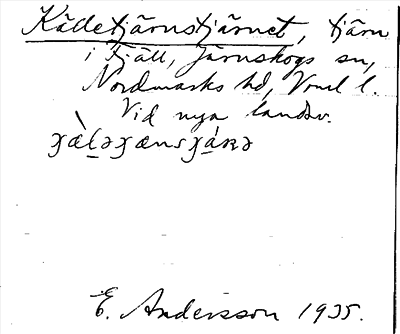 Källetjärnstjärnet, tjärn
i Fjäll, Järnskogs sn,
Nordmarks hd, Vrml l.
Vid nya landsv.
E. Andersson 1935.